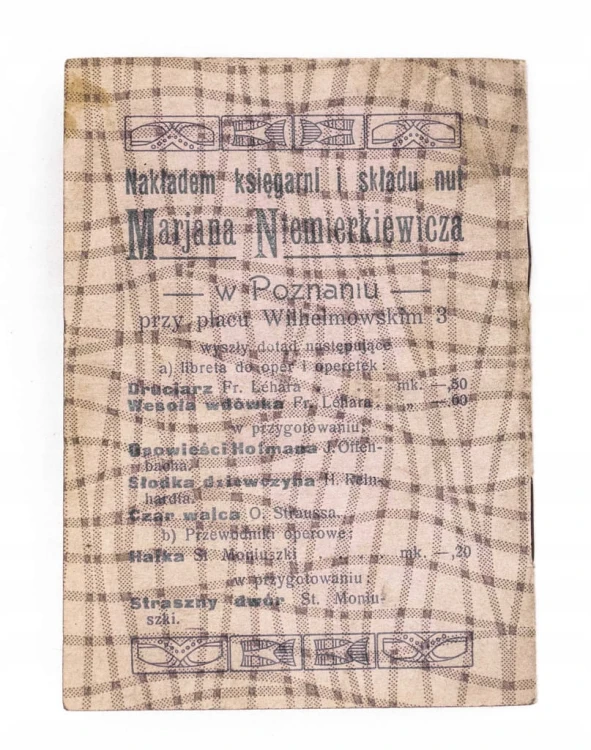 Nakładem księgarni i składu nut
Marjana Niemierkiewicza
— w Poznaniu —
przy placu Wilhelmowskim 3
wyszły dotąd następujące
a) libreta do oper i operetek:
Druciarz Fr. Léhara . . . mk. —,50
Wesoła wdówka Fr. Léhara . „ —,60
w przygotowaniu:
Opowieści Hofmana J. Offen-
bacha.
Słodka dziewczyna H. Rein-
hardta.
Czar walca O. Straussa.
b) Przewodniki operowe:
Halka St. Moniuszki . . . mk. —,20
w przygotowaniu:
Straszny dwór St. Moniu-
szki.